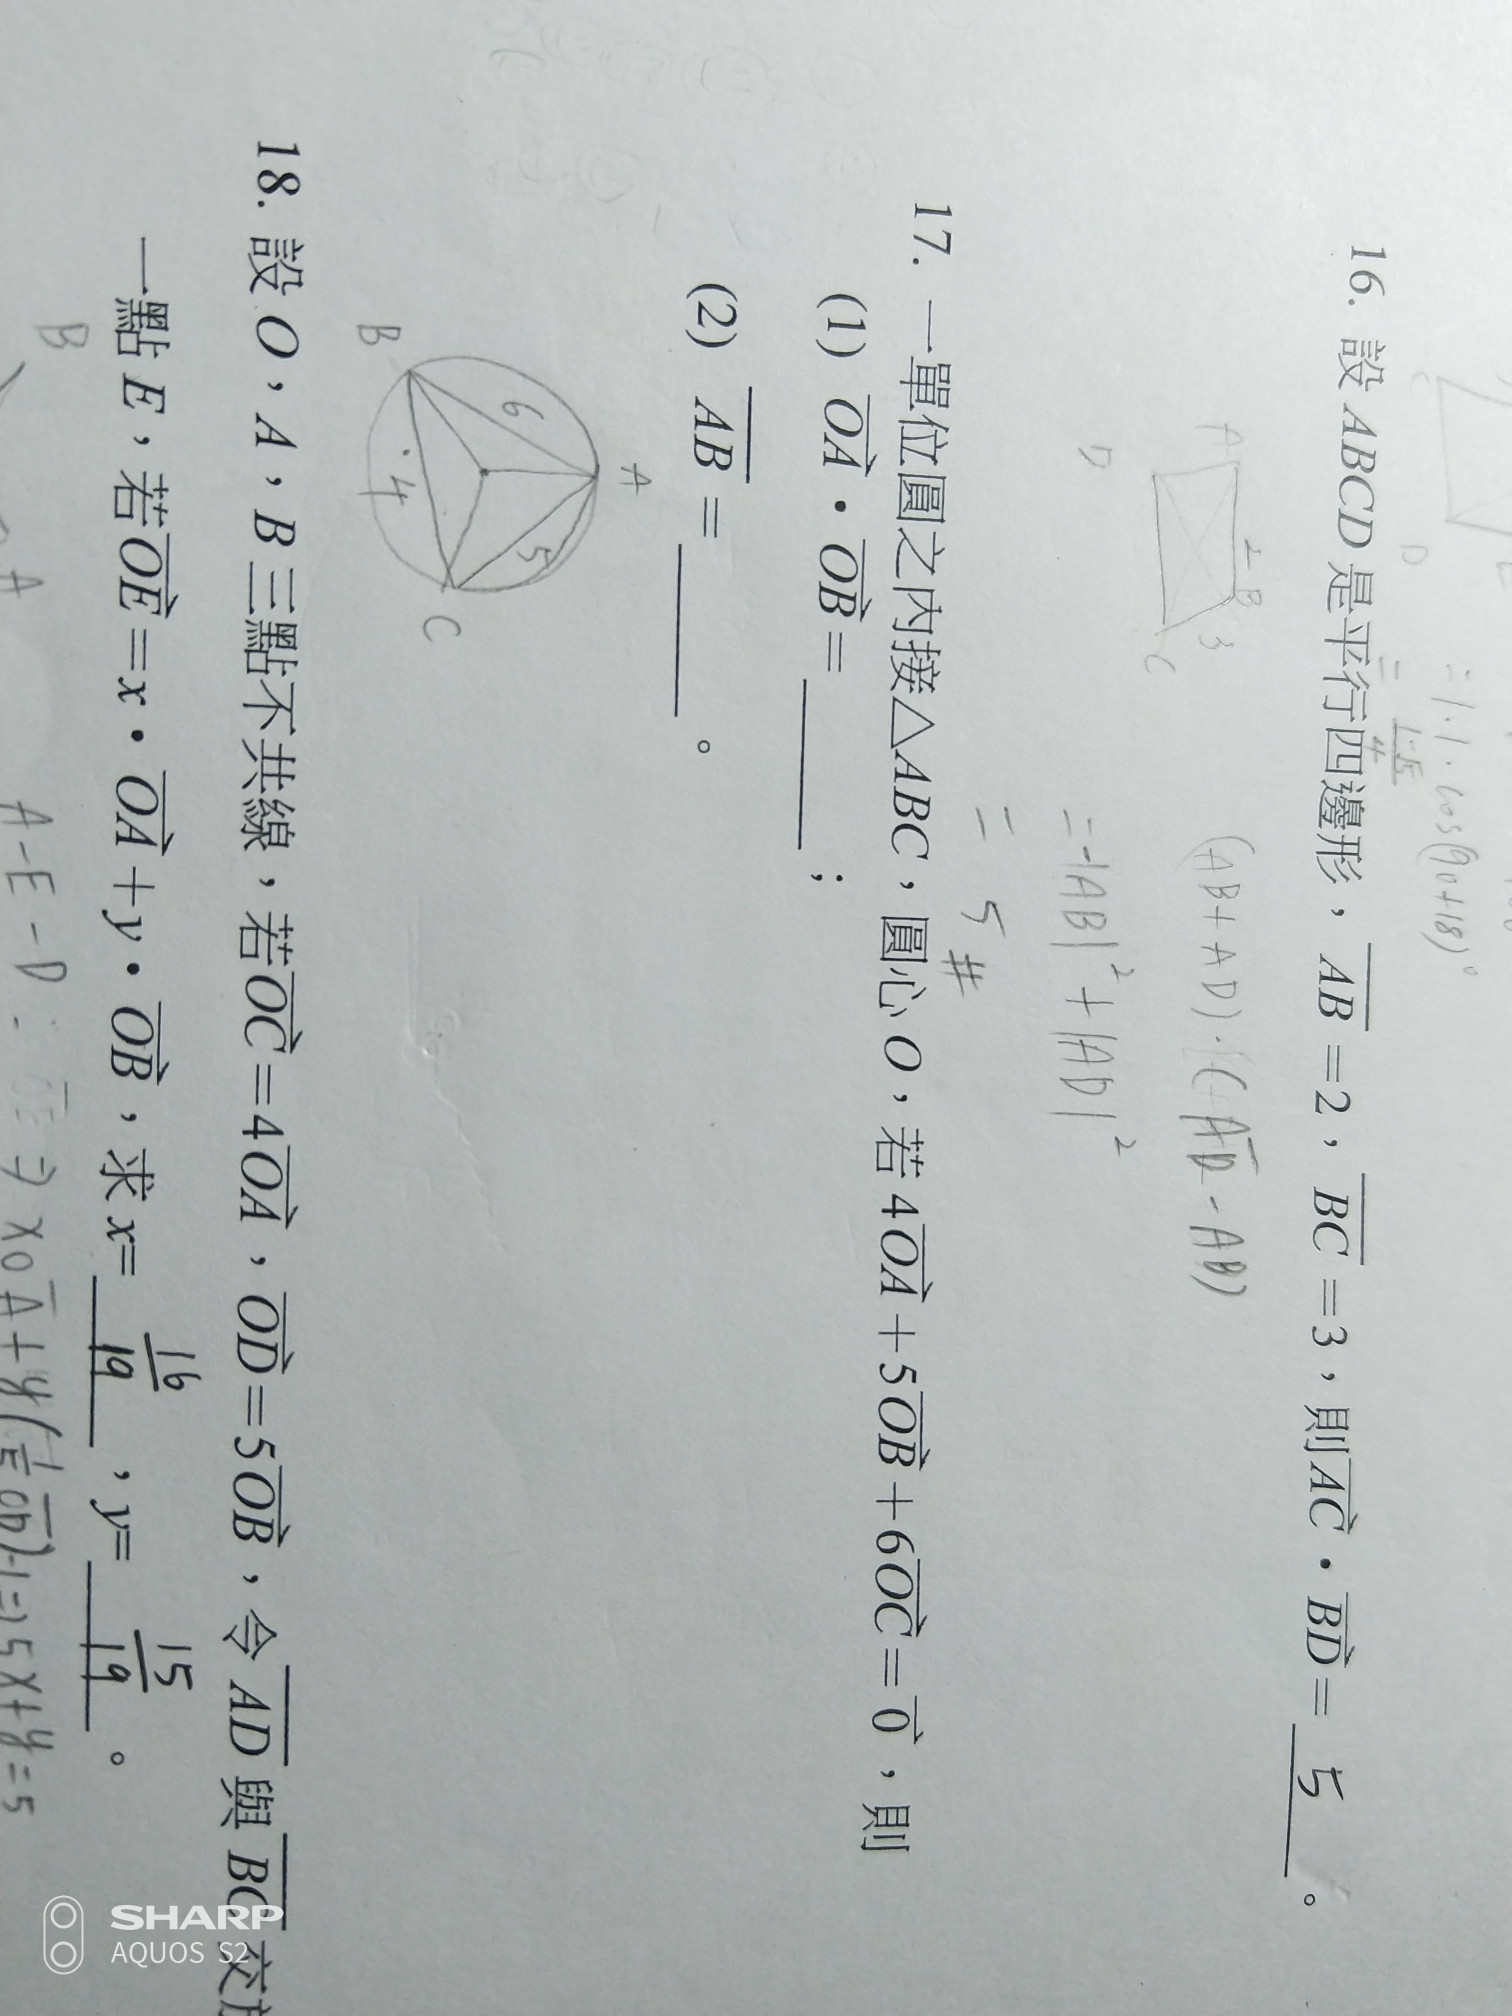 = 1·1·cos(90+18)°
= (1-√5)/4
D
16. 設 ABCD 是平行四邊形，AB=2，BC=3，則AC·BD= 5 。
A 2 B
3
C
D
(AB+AD)·(AD-AB)
= -|AB|²+|AD|²
= 5 #
17. 一單位圓之內接△ABC，圓心 O，若 4OA+5OB+6OC=0，則
(1) OA·OB= ；
(2) AB= 。
A
B
C
6
5
4
18. 設 O，A，B 三點不共線，若OC=4OA，OD=5OB，令 AD 與 BC 交於
一點 E，若OE=x·OA+y·OB，求 x= 16/19 ，y= 15/19 。
B
A
A-E-D : OE ⇒ xOA+y(1/5 OD) 1=5x+y=5
SHARP
AQUOS S2